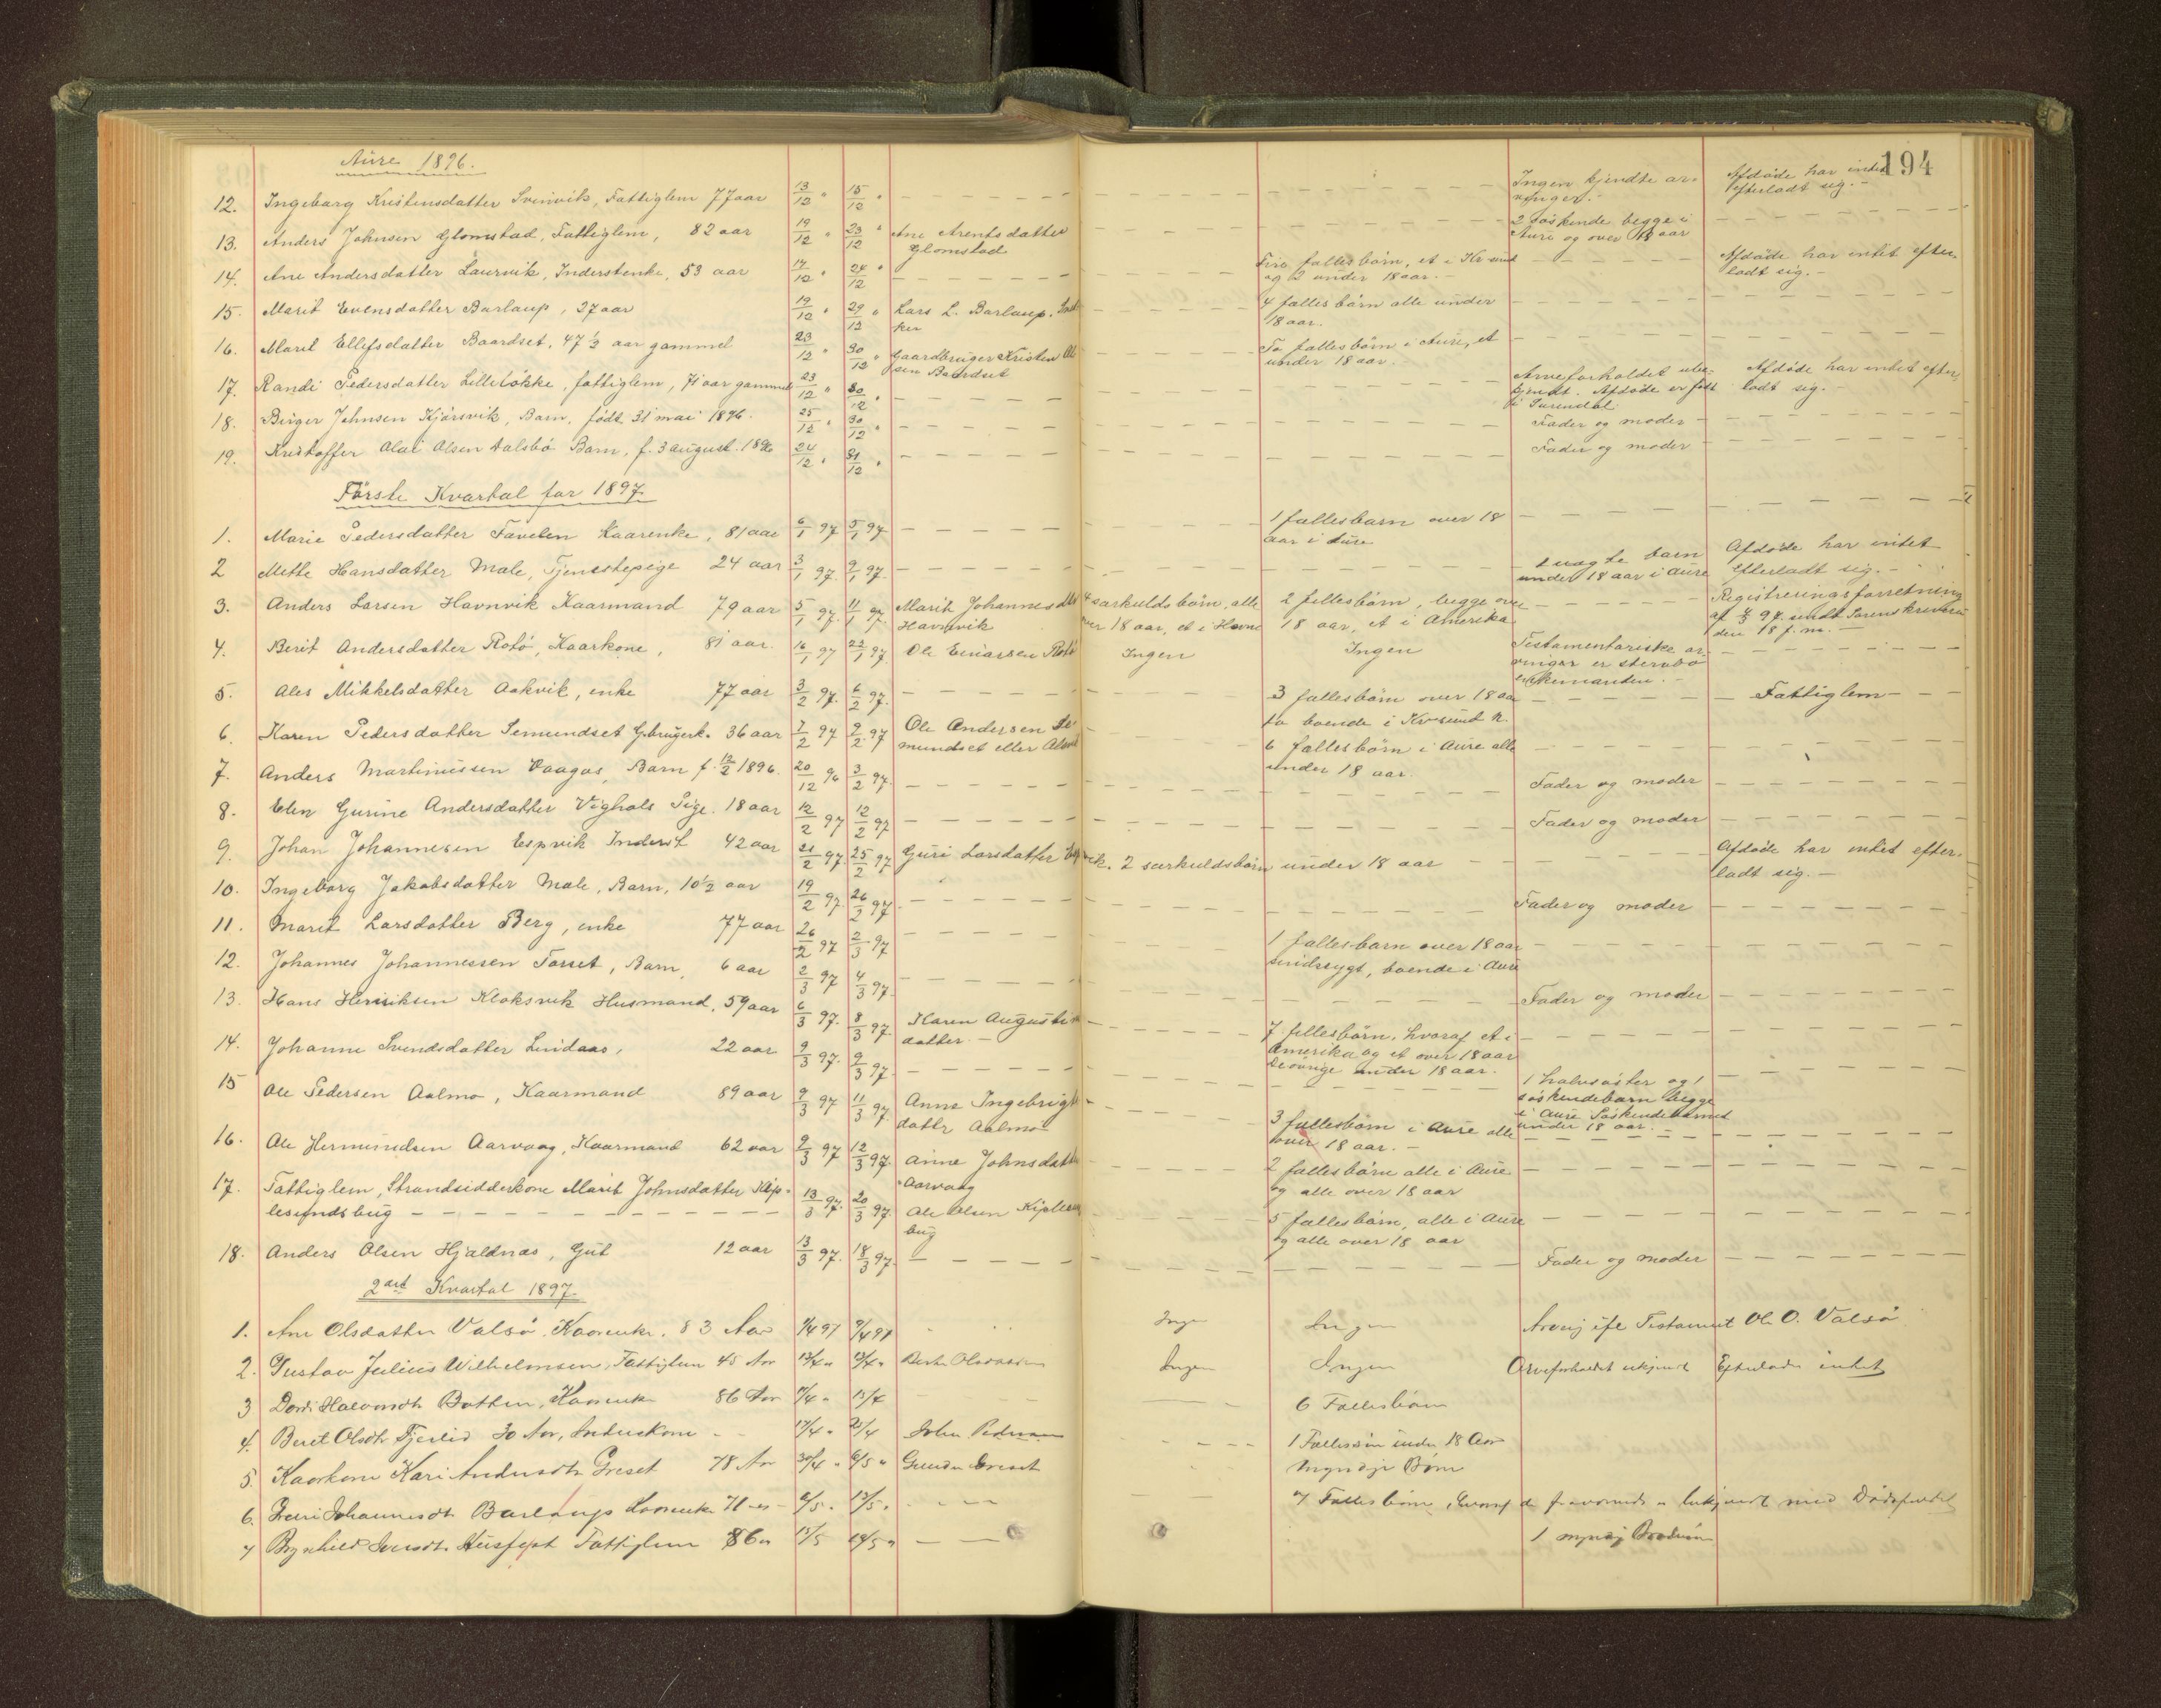 194
Aure 1896.
12. Ingeborg Kristensdatter Svinvik, Fattiglem 77 aar 13/12 " 15/12 " Ingen kjendte ar- Afdøde har intet
vinger. - efterladt sig. -
13. Anders Johnsen Glomstad, Fattiglem, 82 aar 19/12 " 23/12 " Ane Arentsdatter 2 søskende begge i
Glomstad Aure og over 18 aar
14. Ane Andersdatter Laurvik, Inderstenke, 53 aar 17/12 " 24/12 " Fire fællesbørn, et i Kr.sund Afdøde har intet efter-
og 2 under 18 aar. - ladt sig. -
15. Marit Evensdatter Barlaup, 27 aar 19/12 " 29/12 " Lars L. Barlaup, 4 fælles børn alle under
18 aar.
16. Marit Ellefsdatter Baardset, 47 1/2 aar gammel 23/12 " 30/12 " Gaardbruger Kristen Ol To fællesbørn i Aure, et
sen Baardset under 18 aar. -
17. Randi Pedersdatter Lilleløkke, fattiglem, 71 aar gammel 23/12 " 30/12 " Arveforholdet ube- Afdøde har intet efter-
kjendt. Afdøde er født ladt sig. -
i Surendal.
18. Birger Johnsen Kjørsvik, Barn, født 31 mai 1896. 25/12 " 30/12 " Fader og moder
19. Kristoffer Olai Olsen Aalsbø Barn, f. 3 august 1896 24/12 " 31/12 " Fader og moder
Første Kvartal for 1897
1. Marie Pedersdatter Kaarenke, 81 aar 6/1 97 5/1 97 1 fællesbarn over 18
aar i Aure
2 Mette Hansdatter Male, Tjenestepige 24 aar 3/1 97. 9/1 97. uægte barn Afdøde har intet
under 18 aar i Aure efterladt sig. -
3. Anders Larsen Havnvik Kaarmand 79 aar 5/1 97. 11/1 97. Marit Johannesdtr 4 særkuldsbørn, alle 2 fællesbørn, begge over Registreringsforretning
Havnvik over 18 aar, et i Havne 18 aar, et i Amerika af 97. sendt Sorenskriveren
den 18 f. m. -
4. Berit Andersdatter Rotø, Kaarkone, 81 aar. 16/1 97 22/1 97. Ole Einarsen Rotø Ingen Ingen Testamentariske ar-
vinger er stervbo
enkemanden. -
5. Ales Mikkelsdatter Aakvik, enke 77 aar 3/2 97. 6/2 97. 3 fællesbørn over 18 aar Fattiglem
to boende i Kr.sund N.
6. Karen Pedersdatter Semundset Gbrugerk. 36 aar 7/2 97 9/2 97 Ole Andersen Se- 6 fællesbørn i Aure alle
mundset eller under 18 aar.
7. Anders Martinussen Vaagos, Barn f. 12/2 1896. 20/12 96 3/2 97. Fader og moder
8. Elen Gurine Andersdatter Vighals Pige. 18 aar 12/2 97 12/2 97 Fader og moder
9. Johan Johannesen Espvik Inderst 42 aar 21/2 97 25/2 97 Guri Larsdatter Espvik. 2 særkuldsbørn under 18 aar Afdøde har intet efter-
ladt sig. -
10. Ingeborg Jakobsdatter Male, Barn, 10 1/2 aar 19/2 97. 26/2 97 Fader og moder
11. Marit Larsdatter Berg, enke 77 aar 26/2 97 2/3 97 1 fællesbarn over 18 aar
sindssygt, boende i Aure
12. Johannes Johannessen Torset, Barn, 6 aar 2/3 97 4/3 97. Fader og moder
13. Hans Henriksen Kloksvik Husmand, 59 aar 6/3 97. 8/3 97. Karen Augustin 7 fællesbørn, hvoraf et i
datter. - Amerika og et over 18 aar
de øvrige under 18 aar.
14. Johanne Svendsdatter Lindaas, 22 aar 9/3 97. 9/3 97. 1 halvsøster og 1
søskendebarn begge
i Aure Søskendebarnet
under 18 aar.
15 Ole Pedersen Aalmo, Kaarmand 89 aar 9/3 97 11/3 97. Anne Ingebrigt 3 fællesbørn i Aure alle
dattr Aalmo over 18 aar. -
16. Ole Hermundsen Aarvaag, Kaarmand 62 aar 9/3 97 12/3 97. Anne Johnsdatter 2 fællesbørn alle i Aure
Aarvaag og alle over 18 aar
17. Fattiglem, Strandsidderkone Marit Johnsdatter Kip- 13/3 97. 20/3 97. Ole Olsen 5 fællesbørn, alle i Aure
lesundsbug bug og alle over 18 aar
18. Anders Olsen Hjaldnæs, Gut 12 aar 13/3 97. 18/3 97. Fader og moder
2det Kvartal 1897.
1. Ane Olsdatter Valsø. Kaarenke. 83 Aar 9/4 97 Ingen Ingen Arving ifl Testament Ole O. Valsø
2. Gustav Julius Wilhelmsen, Fattiglem 45 Aar 13/4 " 13/4 " Ingen Ingen Arveforholdet ukjendt Efterlader intet
3 Dordi Halvorsdtr Botten, Kaarenke 86 Aar 7/4 " 13/4 6 Fællesbørn
4. Beret Olsdtr Fjerlid 30 Aar, Inderkone 17/4 " 25/4 John Pedersen 1 Fællesbørn under 18 Aar
5. Kaarkone Kari Andersdtr Greset 78 Aar 30/4 " 6/5 " Gunder Greset Myndige Børn
6. Johannesdt Barlaup Kaarenke 71 " 6/5 " 13/5 " 7 Fællesbørn, hvoraf
7 Iversdt. Husfest Fattiglem 86 " 13/5 19/5 " 1 myndig